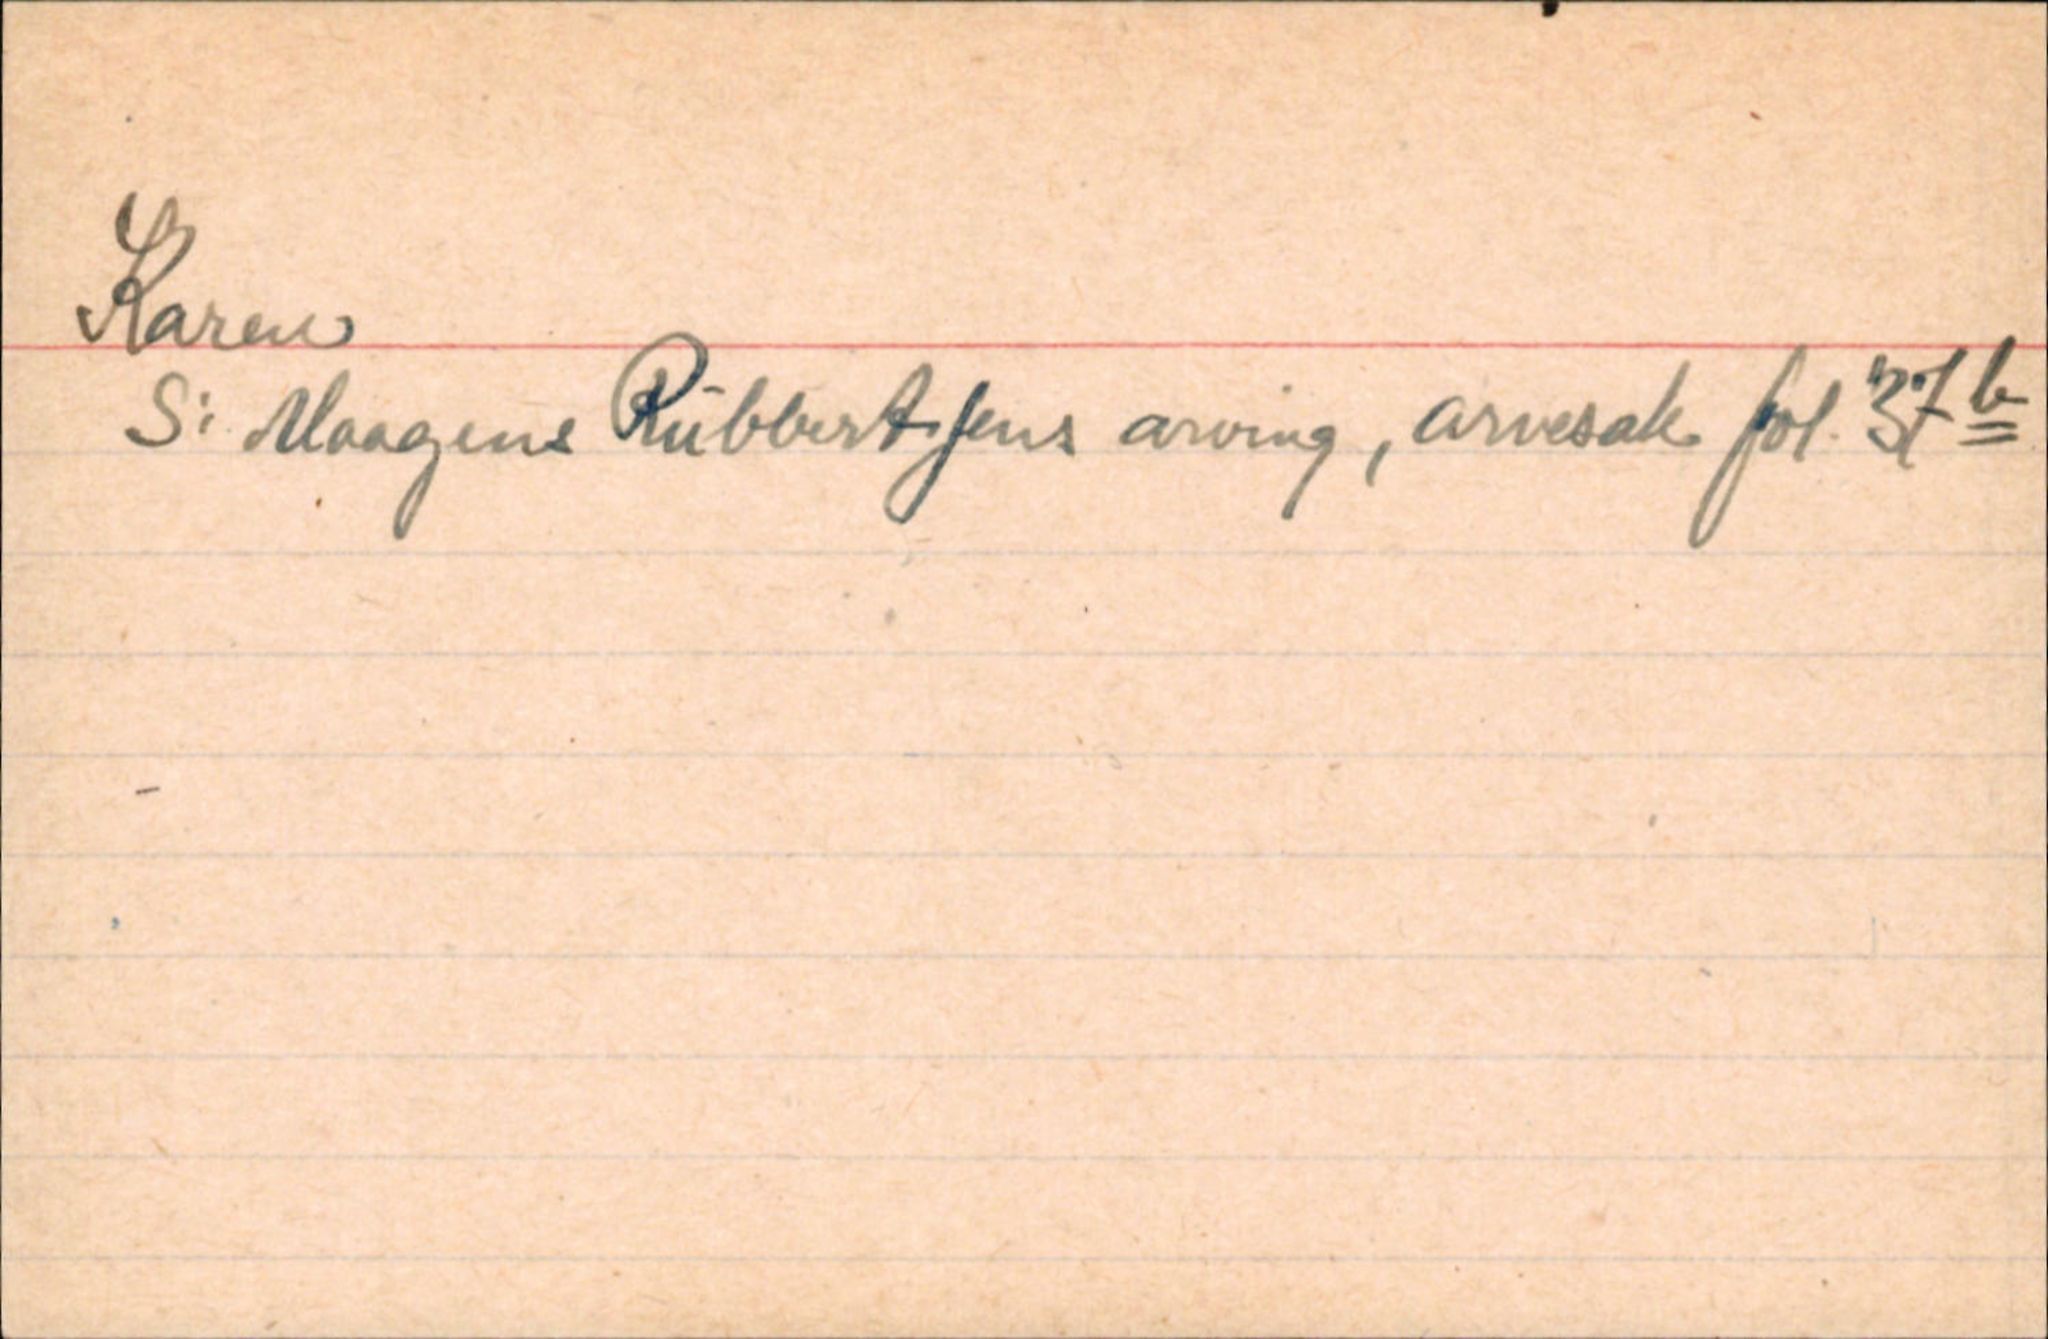 Karen
S: Maagens Rübbertsens arving, arvesak fol. 37 b